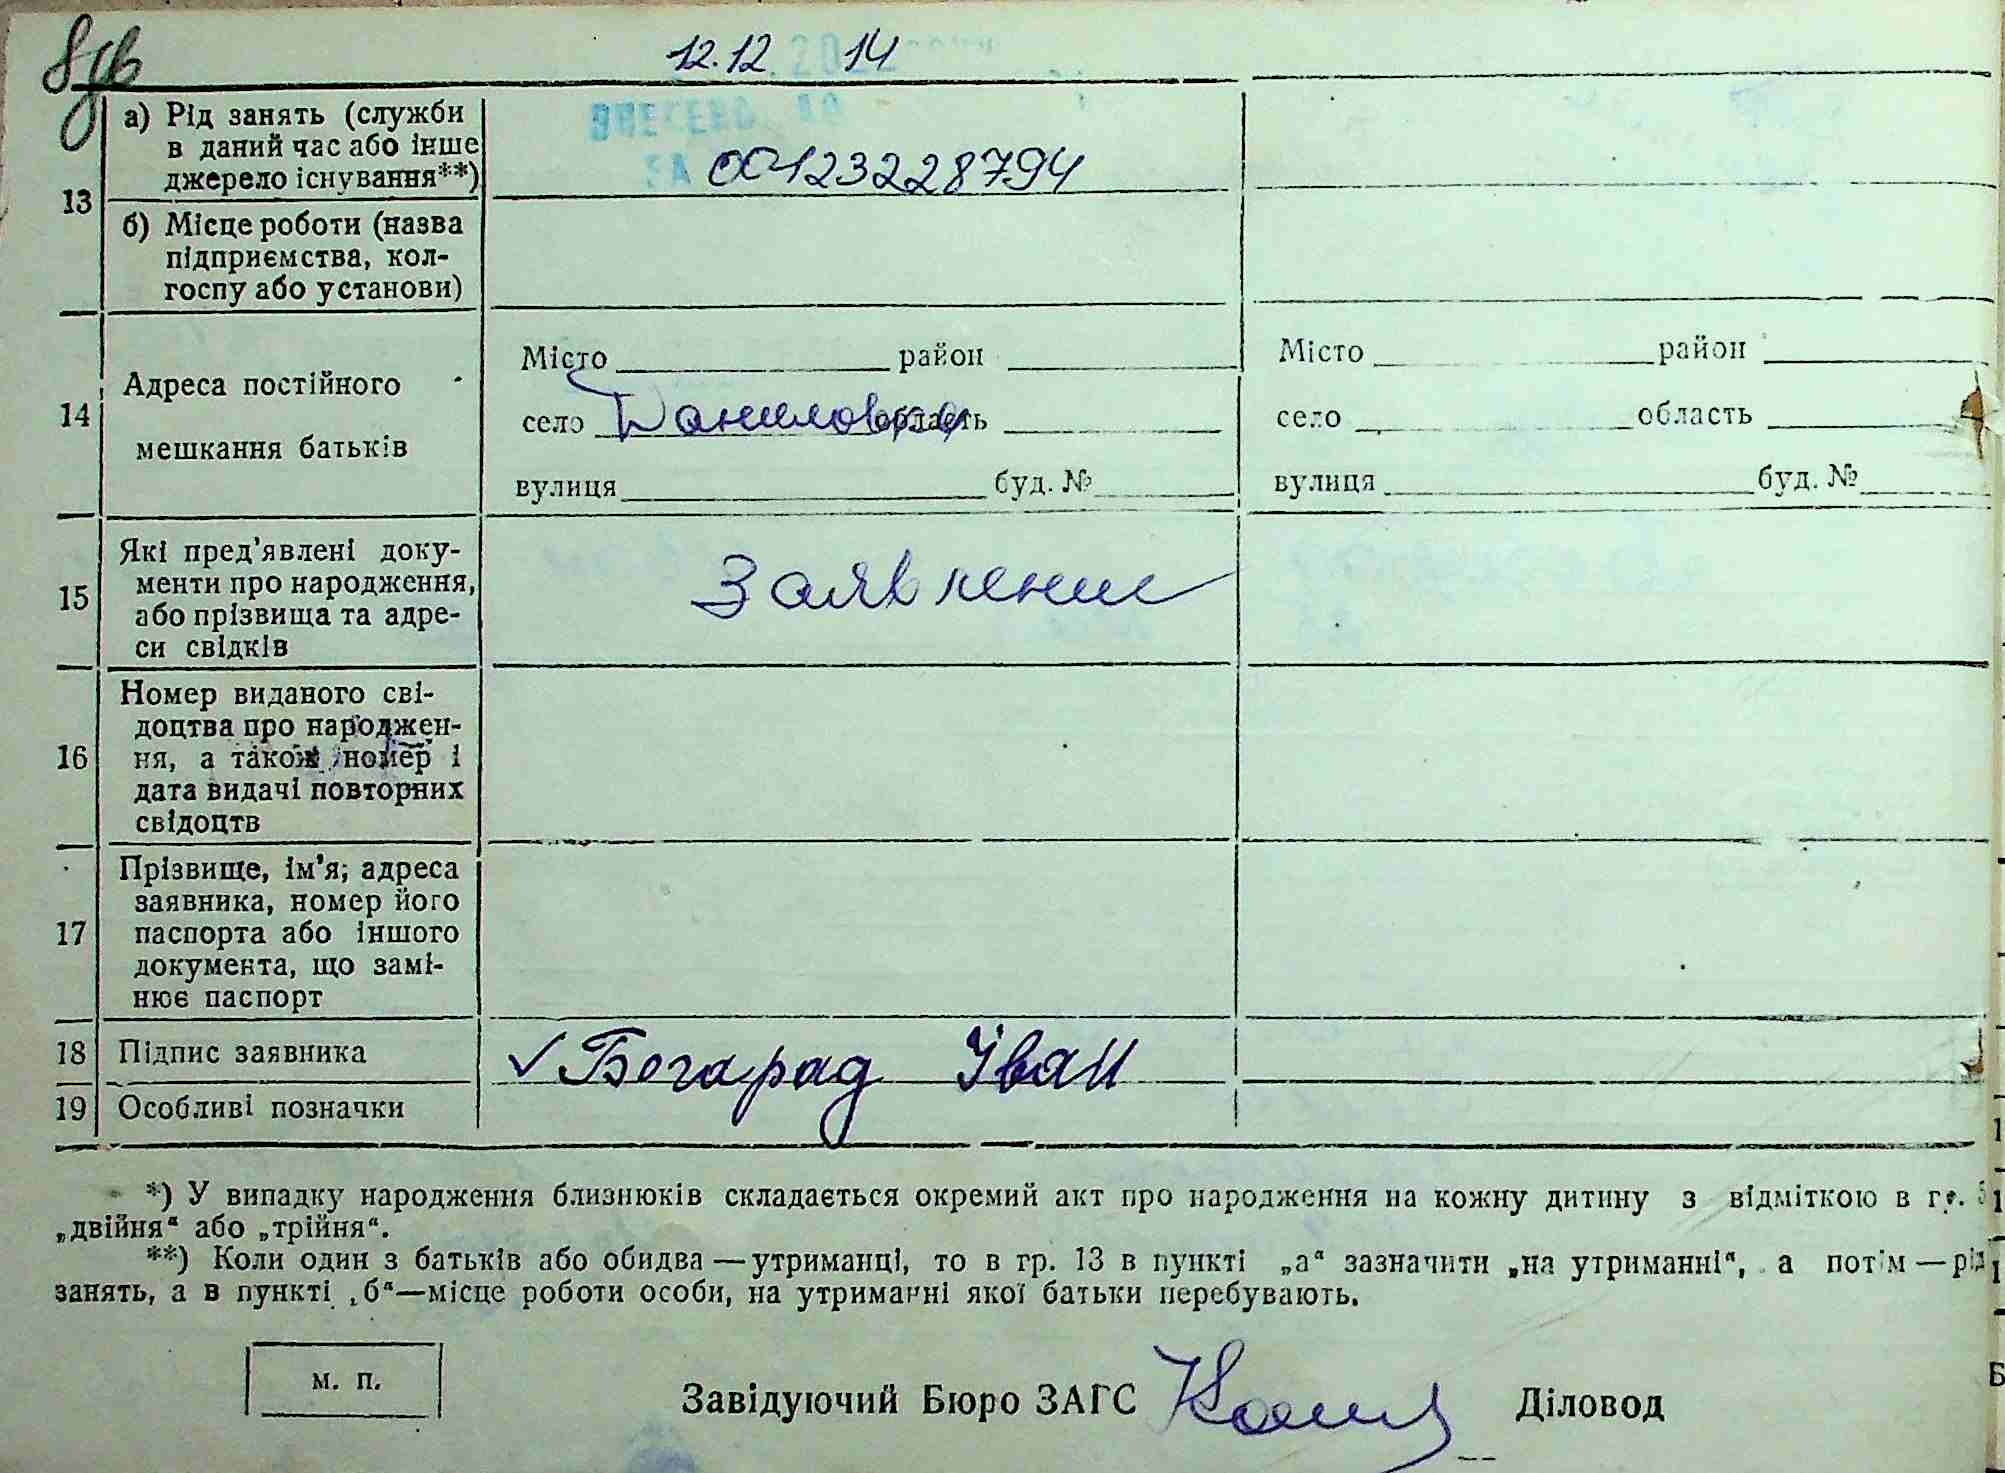 12.12. 2022 14
ВНЕСЕНО ДО
ЗА 00123228794
13 а) Рід занять (служби
в даний час або інше
джерело існування**)
б) Місце роботи (назва
підприємства, кол-
госпу або установи)
14 Адреса постійного
мешкання батьків
Місто район
село Даниловка область
вулиця буд. №
Місто район
село область
вулиця буд. №
15 Які пред'явлені доку-
менти про народження,
або прізвища та адре-
си свідків
Заявление
16 Номер виданого сві-
доцтва про народжен-
ня, а також номер і
дата видачі повторних
свідоцтв
17 Прізвище, ім'я; адреса
заявника, номер його
паспорта або іншого
документа, що замі-
нює паспорт
18 Підпис заявника ✓ Богарад Іван
19 Особливі позначки
*) У випадку народження близнюків складається окремий акт про народження на кожну дитину з відміткою в гр. 5
„двійня“ або „трійня“.
**) Коли один з батьків або обидва — утриманці, то в гр. 13 в пункті „а“ зазначити „на утриманні“, а потім — рід
занять, а в пункті „б“—місце роботи особи, на утриманні якої батьки перебувають.
м. п.
Завідуючий Бюро ЗАГС Діловод